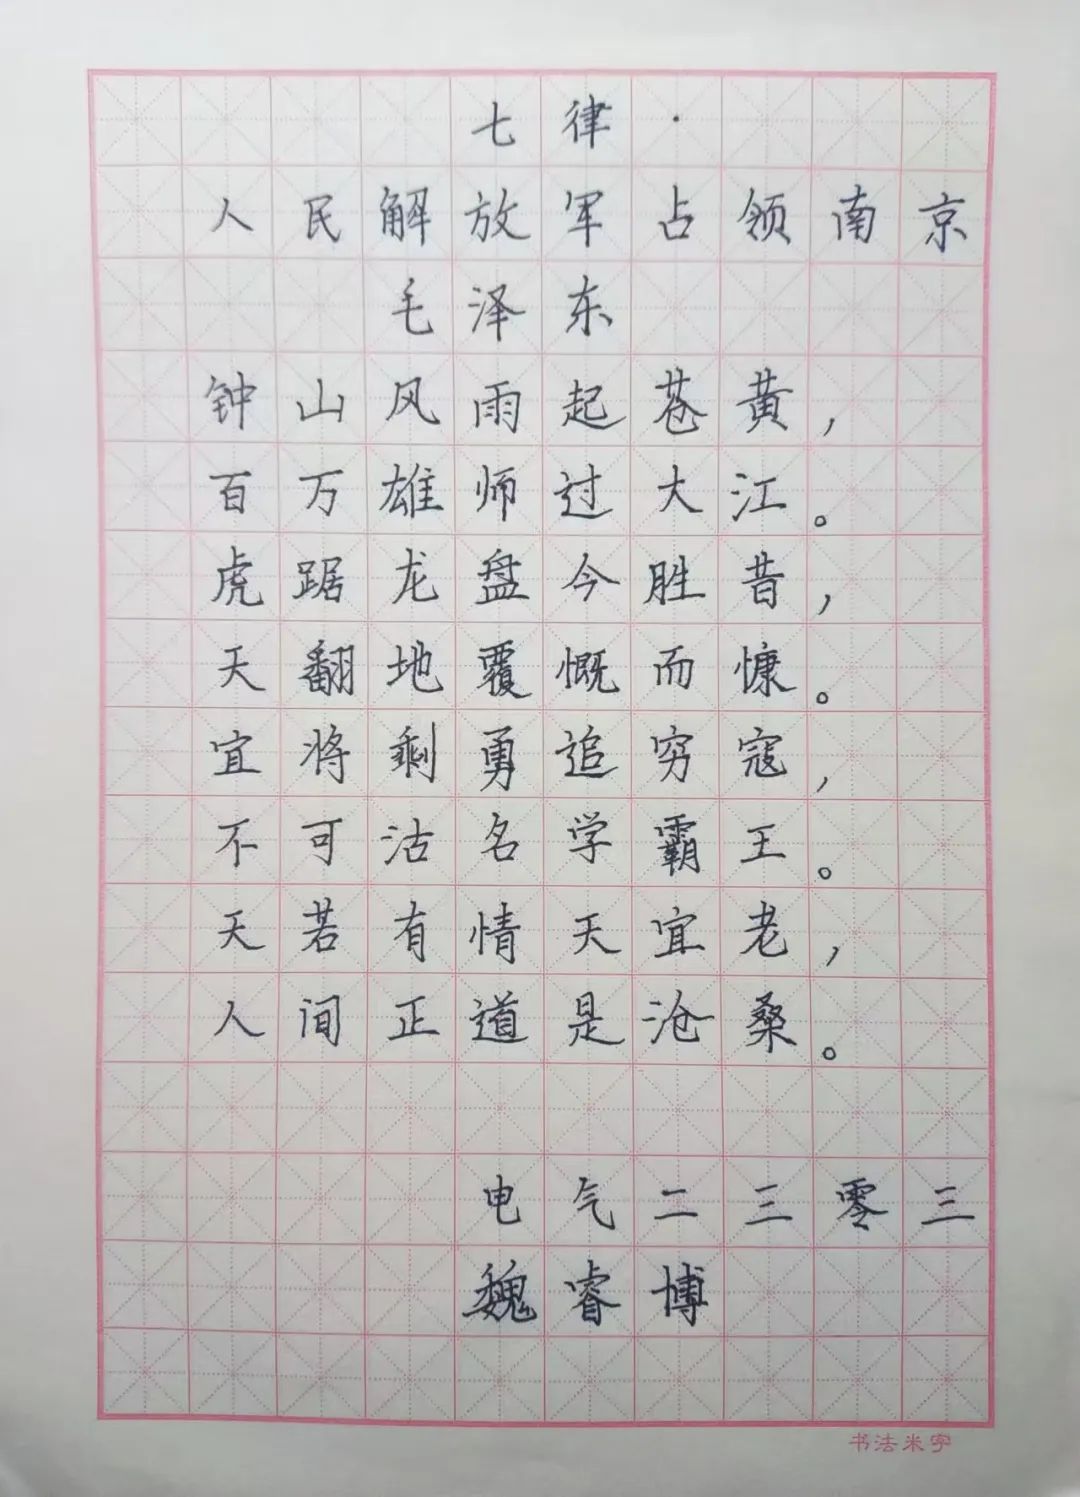 七律·
人民解放军占领南京
毛泽东
钟山风雨起苍黄，
百万雄师过大江。
虎踞龙盘今胜昔，
天翻地覆慨而慷。
宜将剩勇追穷寇，
不可沽名学霸王。
天若有情天宜老，
人间正道是沧桑。
电气二三零三
魏睿博
书法米字